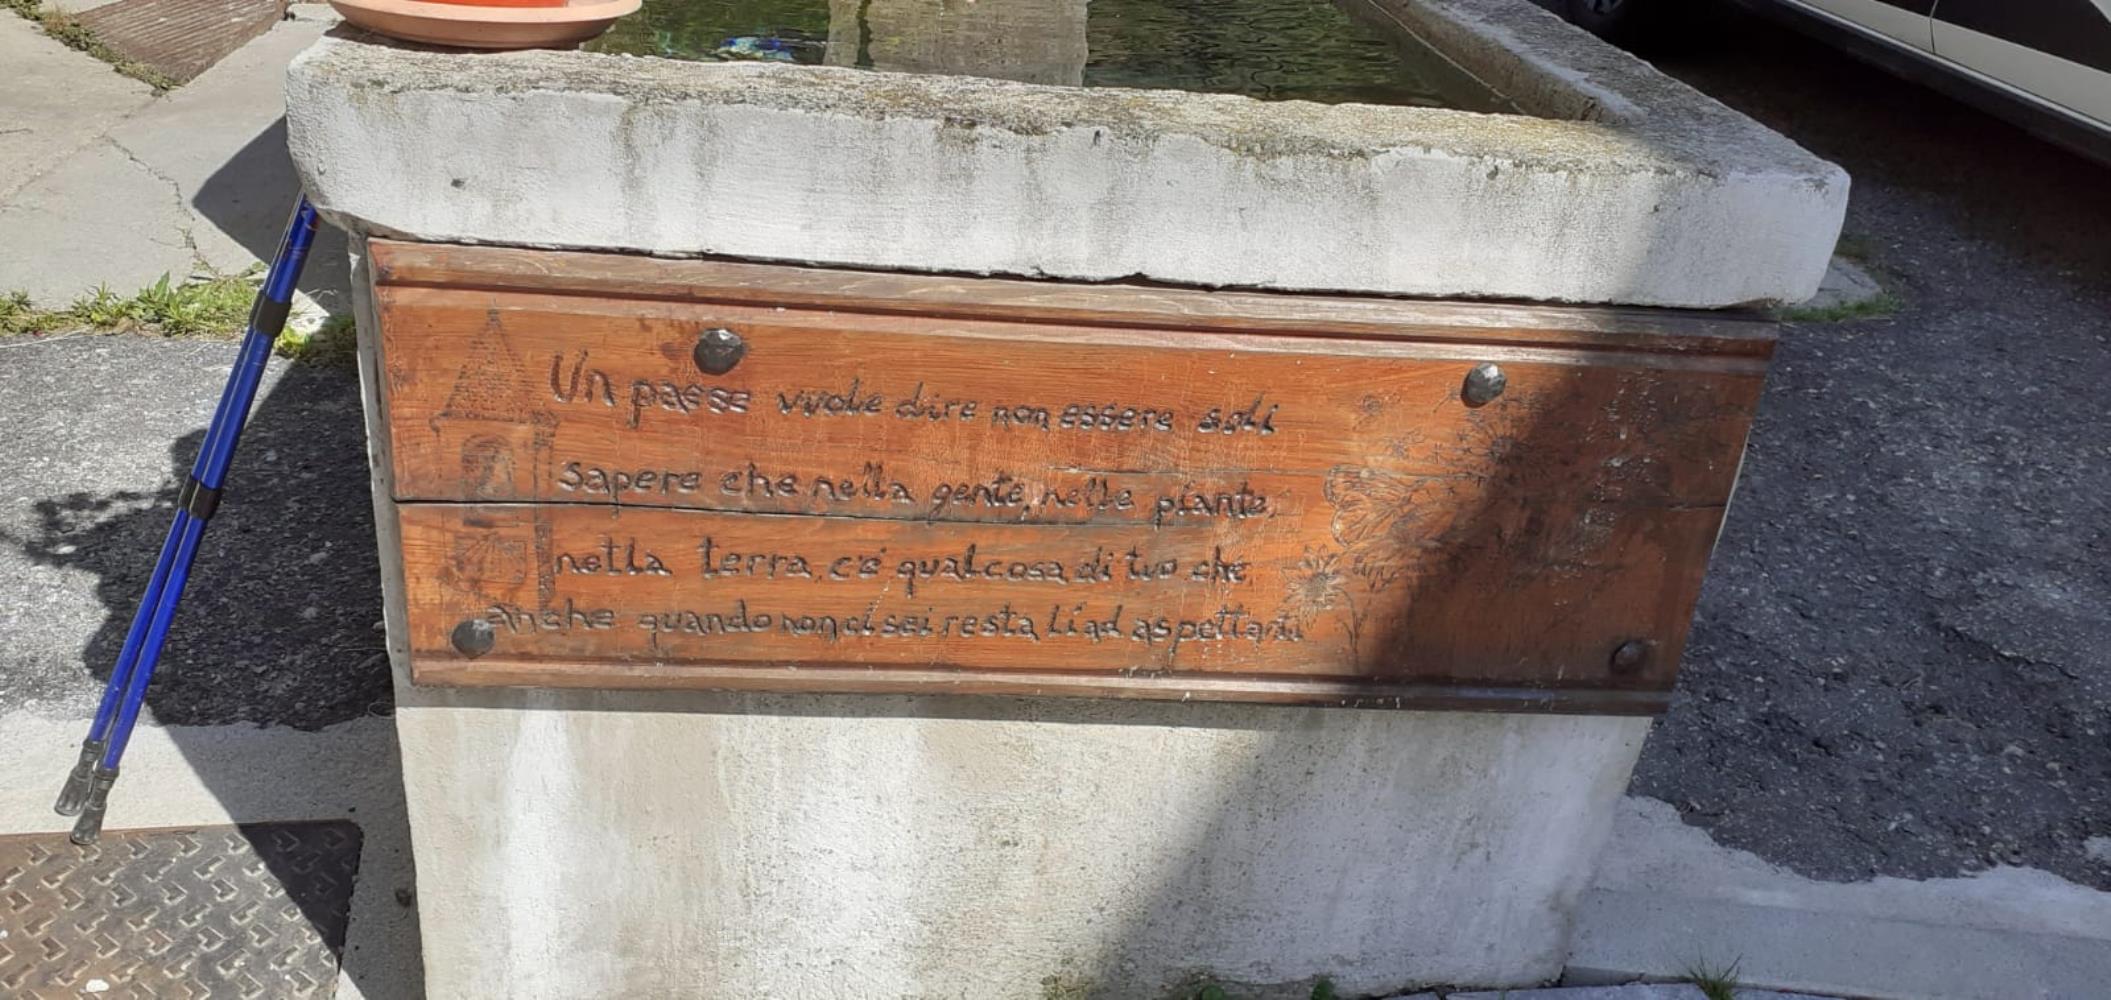 Un paese vuole dire non essere soli
sapere che nella gente, nelle piante,
nella terra, c'é qualcosa di tuo che
anche quando non ci sei resta lí ad aspettarti